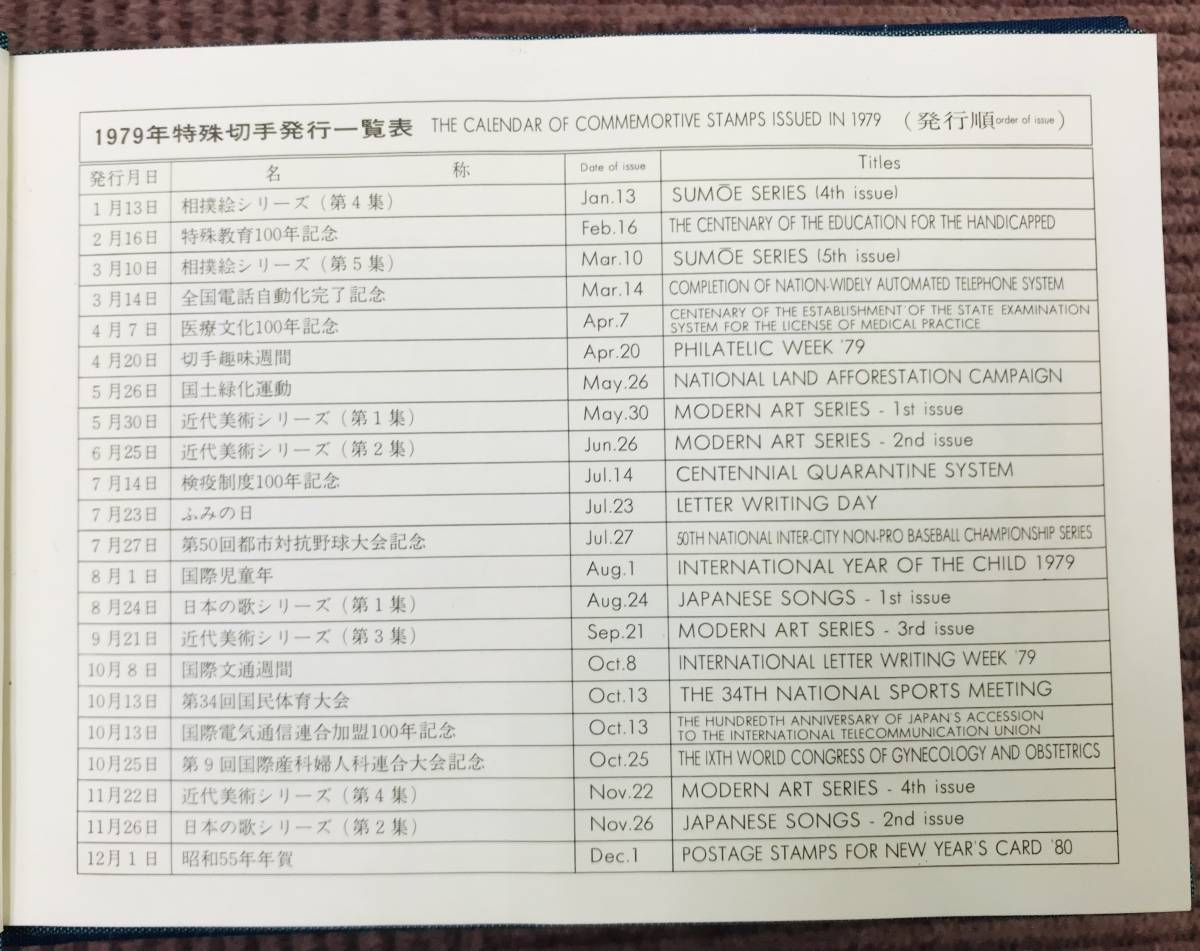 1979年特殊切手発行一覧表 THE CALENDAR OF COMMEMORTIVE STAMPS ISSUED IN 1979 (発行順 order of issue)
発行月日 名称 Date of issue Titles
1月13日 相撲絵シリーズ(第4集) Jan.13 SUMŌE SERIES (4th issue)
2月16日 特殊教育100年記念 Feb.16 THE CENTENARY OF THE EDUCATION FOR THE HANDICAPPED
3月10日 相撲絵シリーズ(第5集) Mar.10 SUMŌE SERIES (5th issue)
3月14日 全国電話自動化完了記念 Mar.14 COMPLETION OF NATION-WIDELY AUTOMATED TELEPHONE SYSTEM
4月7日 医療文化100年記念 Apr.7 CENTENARY OF THE ESTABLISHMENT OF THE STATE EXAMINATION
SYSTEM FOR THE LICENSE OF MEDICAL PRACTICE
4月20日 切手趣味週間 Apr.20 PHILATELIC WEEK '79
5月26日 国土緑化運動 May.26 NATIONAL LAND AFFORESTATION CAMPAIGN
5月30日 近代美術シリーズ(第1集) May.30 MODERN ART SERIES - 1st issue
6月25日 近代美術シリーズ(第2集) Jun.26 MODERN ART SERIES - 2nd issue
7月14日 検疫制度100年記念 Jul.14 CENTENNIAL QUARANTINE SYSTEM
7月23日 ふみの日 Jul.23 LETTER WRITING DAY
7月27日 第50回都市対抗野球大会記念 Jul.27 50TH NATIONAL INTER-CITY NON-PRO BASEBALL CHAMPIONSHIP SERIES
8月1日 国際児童年 Aug.1 INTERNATIONAL YEAR OF THE CHILD 1979
8月24日 日本の歌シリーズ(第1集) Aug.24 JAPANESE SONGS - 1st issue
9月21日 近代美術シリーズ(第3集) Sep.21 MODERN ART SERIES - 3rd issue
10月8日 国際文通週間 Oct.8 INTERNATIONAL LETTER WRITING WEEK '79
10月13日 第34回国民体育大会 Oct.13 THE 34TH NATIONAL SPORTS MEETING
10月13日 国際電気通信連合加盟100年記念 Oct.13 THE HUNDREDTH ANNIVERSARY OF JAPAN'S ACCESSION
TO THE INTERNATIONAL TELECOMMUNICATION UNION
10月25日 第9回国際産科婦人科連合大会記念 Oct.25 THE IXTH WORLD CONGRESS OF GYNECOLOGY AND OBSTETRICS
11月22日 近代美術シリーズ(第4集) Nov.22 MODERN ART SERIES - 4th issue
11月26日 日本の歌シリーズ(第2集) Nov.26 JAPANESE SONGS - 2nd issue
12月1日 昭和55年年賀 Dec.1 POSTAGE STAMPS FOR NEW YEAR'S CARD '80